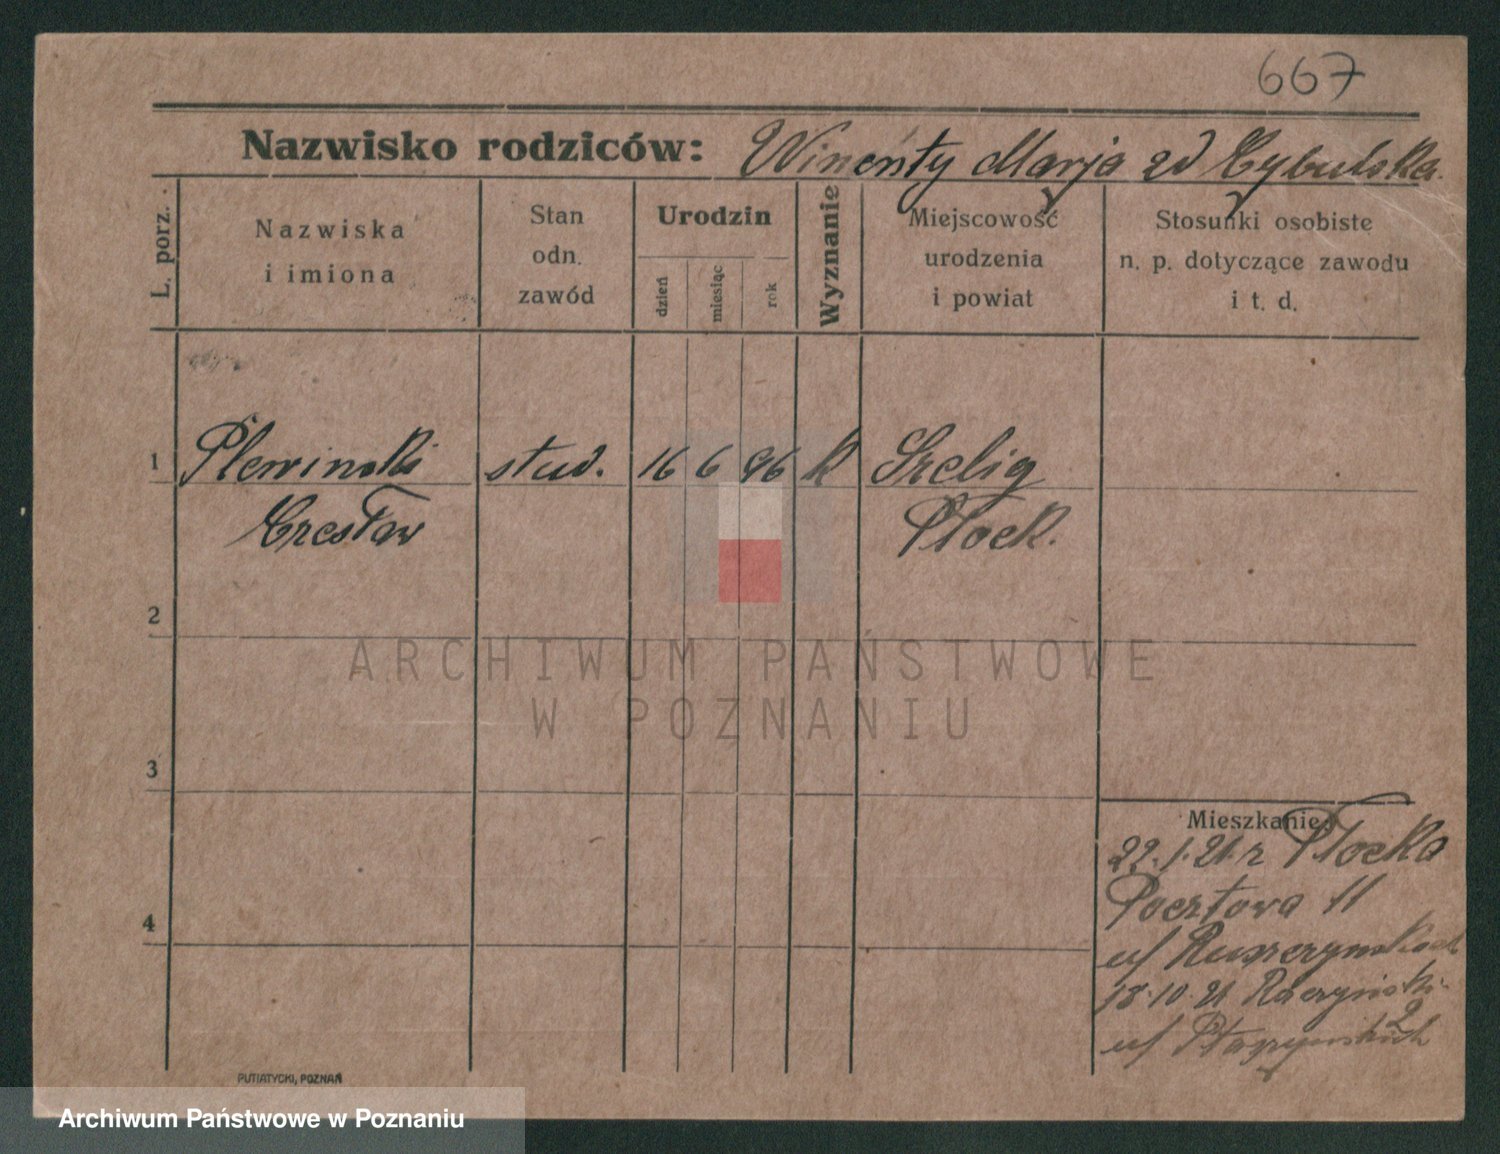 667
Nazwisko rodziców: Wincenty Marja zd Cybulska.
L. porz.
Nazwiska
i imiona
Stan
odn.
zawód
Urodzin
dzień
miesiąc
rok
Wyznanie
Miejscowość
urodzenia
i powiat
Stosunki osobiste
n. p. dotyczące zawodu
i t. d.
1 Plewinski stud. 16 6 96 k Szelig
Czesław Płock.
2
ARCHIWUM PAŃSTWOWE
W POZNANIU
3
Mieszkanie:
22.1.21. z Płocka
4
Pocztowa 11
u/
18.10.21 Raczyński
2
u/
PUTIATYCKI, POZNAŃ
Archiwum Państwowe w Poznaniu